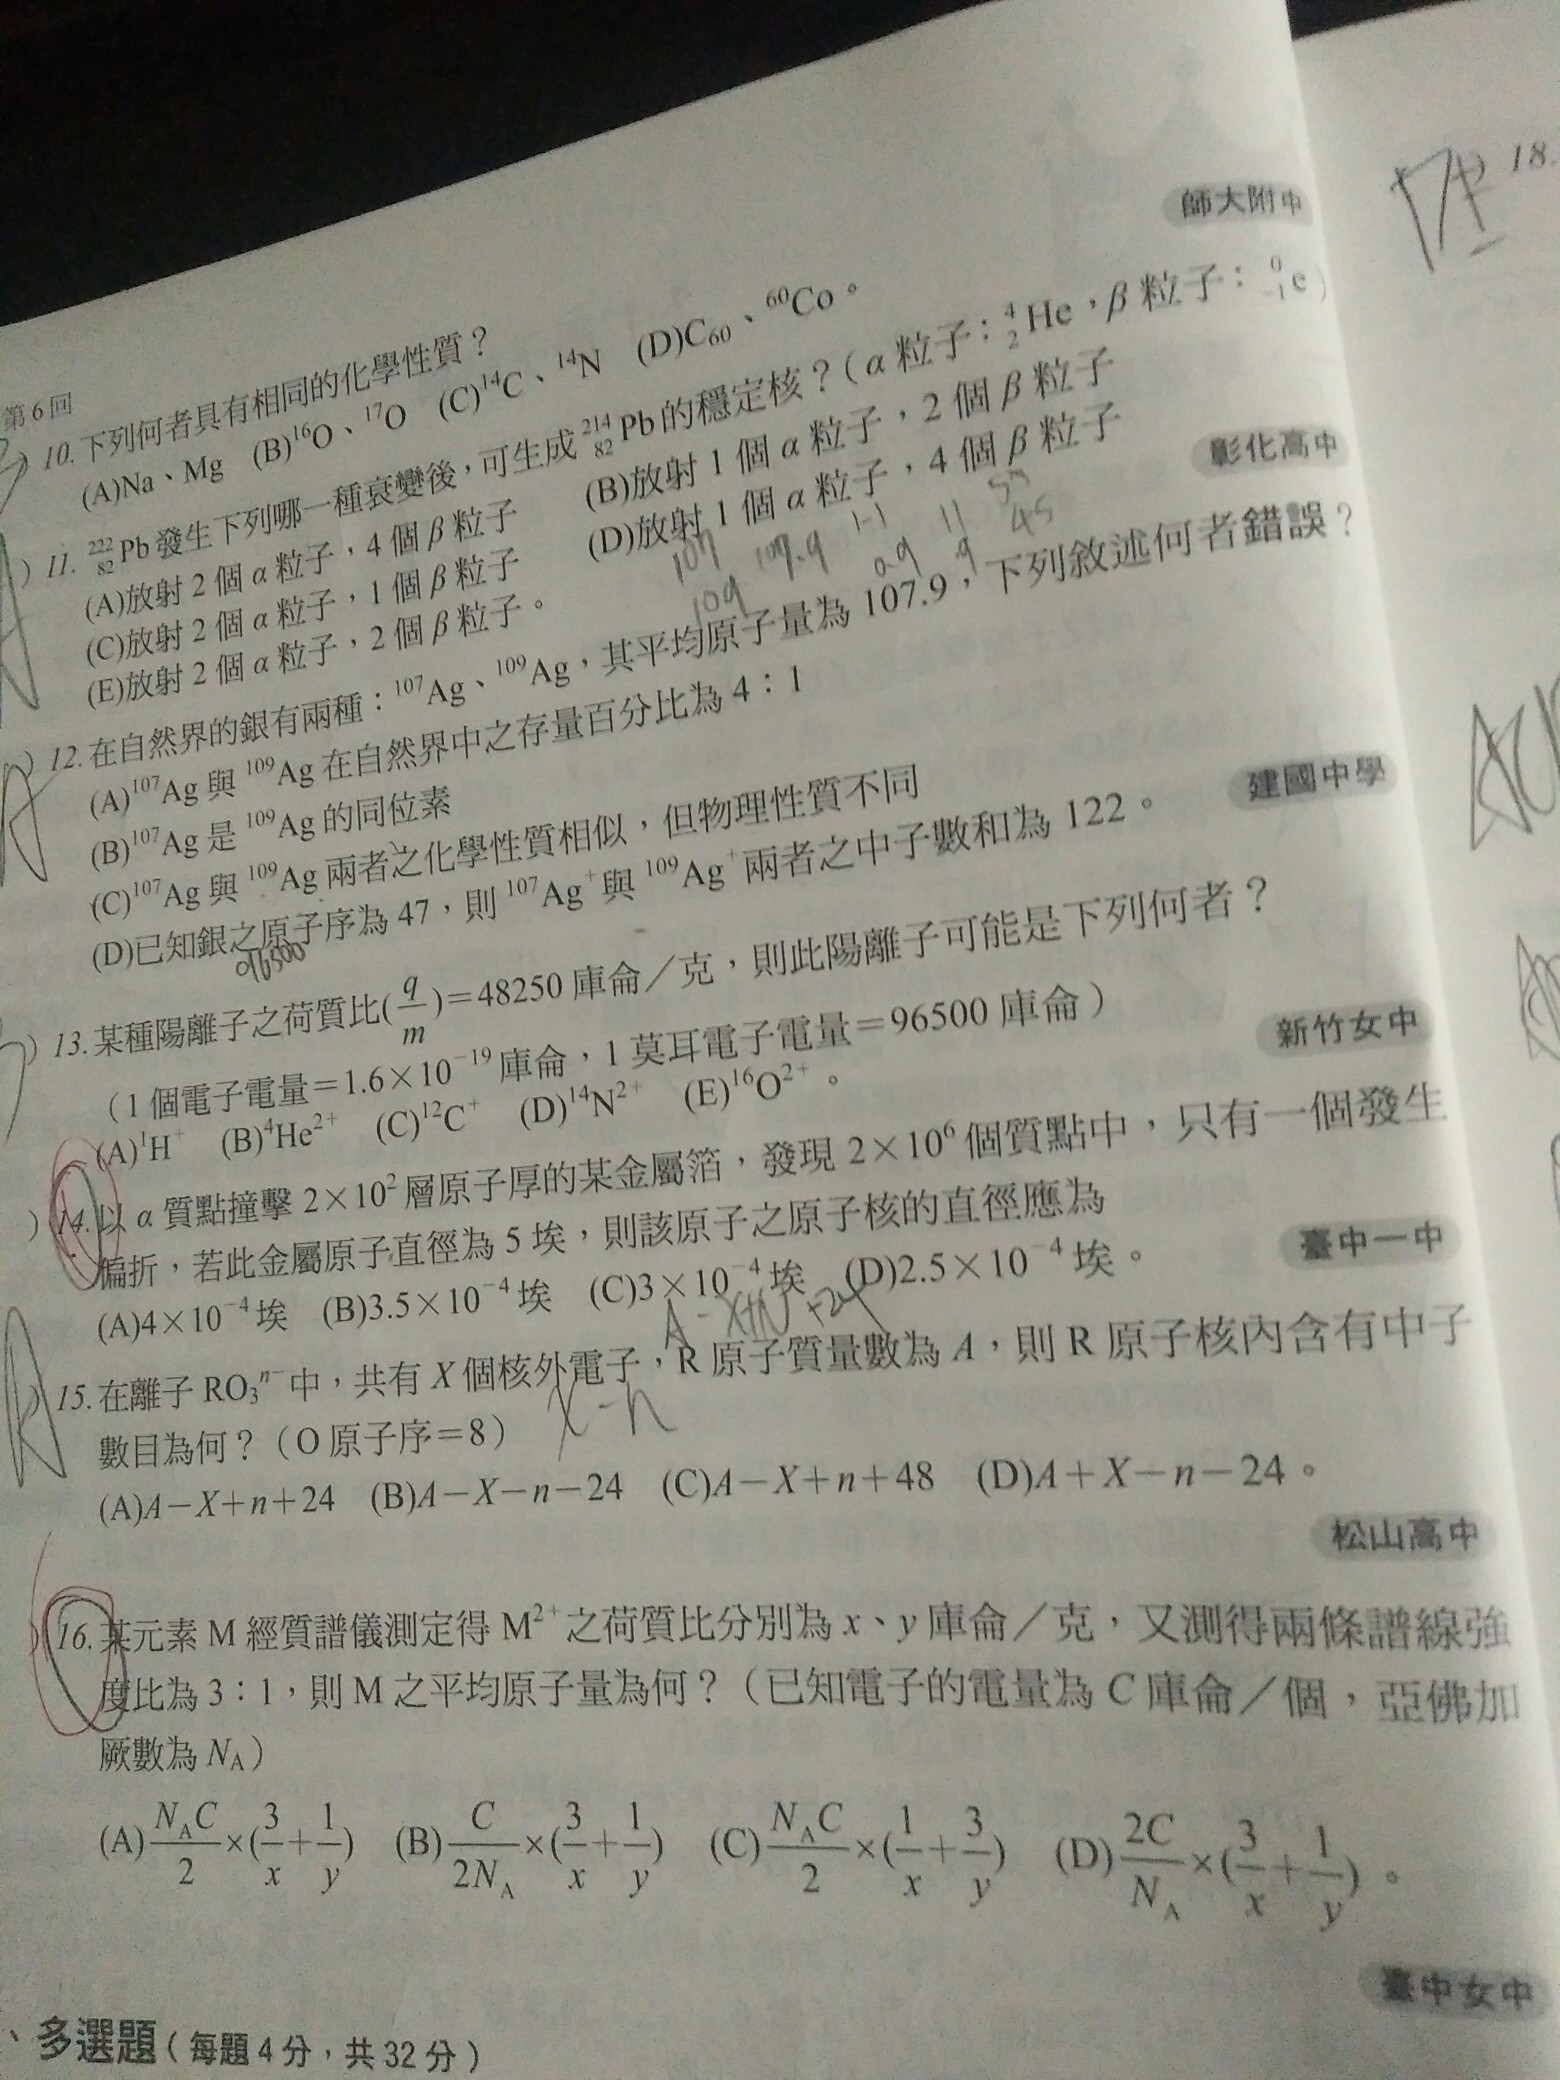 第6回
師大附中
10.下列何者具有相同的化學性質？
(A)Na、Mg (B)¹⁶O、¹⁷O (C)¹⁴C、¹⁴N (D)C₆₀、⁶⁰Co。
11. ²²²₈₂Pb發生下列哪一種衰變後，可生成²¹⁴₈₂Pb的穩定核？（α粒子：⁴₂He，β粒子：⁰₋₁e）
(A)放射2個α粒子，4個β粒子 (B)放射1個α粒子，2個β粒子
(C)放射2個α粒子，1個β粒子 (D)放射1個α粒子，4個β粒子
(E)放射2個α粒子，2個β粒子。
彰化高中
107 107.9 1.1 11 55
109 0.9 9 45
12.在自然界的銀有兩種：¹⁰⁷Ag、¹⁰⁹Ag，其平均原子量為107.9，下列敘述何者錯誤？
(A)¹⁰⁷Ag與¹⁰⁹Ag在自然界中之存量百分比為4：1
(B)¹⁰⁷Ag是¹⁰⁹Ag的同位素
(C)¹⁰⁷Ag與¹⁰⁹Ag兩者之化學性質相似，但物理性質不同
(D)已知銀之原子序為47，則¹⁰⁷Ag⁺與¹⁰⁹Ag⁺兩者之中子數和為122。
建國中學
96500
13.某種陽離子之荷質比(q/m)＝48250庫侖／克，則此陽離子可能是下列何者？
（1個電子電量＝1.6×10⁻¹⁹庫侖，1莫耳電子電量＝96500庫侖）
(A)¹H⁺ (B)⁴He²⁺ (C)¹²C⁺ (D)¹⁴N²⁺ (E)¹⁶O²⁺。
新竹女中
14.以α質點撞擊2×10²層原子厚的某金屬箔，發現2×10⁶個質點中，只有一個發生
偏折，若此金屬原子直徑為5埃，則該原子之原子核的直徑應為
(A)4×10⁻⁴埃 (B)3.5×10⁻⁴埃 (C)3×10⁻⁴埃 (D)2.5×10⁻⁴埃。
臺中一中
A-X+n+24
15.在離子RO₃ⁿ⁻中，共有X個核外電子，R原子質量數為A，則R原子核內含有中子
數目為何？（O原子序＝8）
X-n
(A)A－X＋n＋24 (B)A－X－n－24 (C)A－X＋n＋48 (D)A＋X－n－24。
松山高中
16.某元素M經質譜儀測定得M²⁺之荷質比分別為x、y庫侖／克，又測得兩條譜線強
度比為3：1，則M之平均原子量為何？（已知電子的電量為C庫侖／個，亞佛加
厥數為N_A）
(A)N_AC/2×(3/x+1/y) (B)C/2N_A×(3/x+1/y) (C)N_AC/2×(1/x+3/y) (D)2C/N_A×(3/x+1/y)。
臺中女中
、多選題（每題4分，共32分）
18.